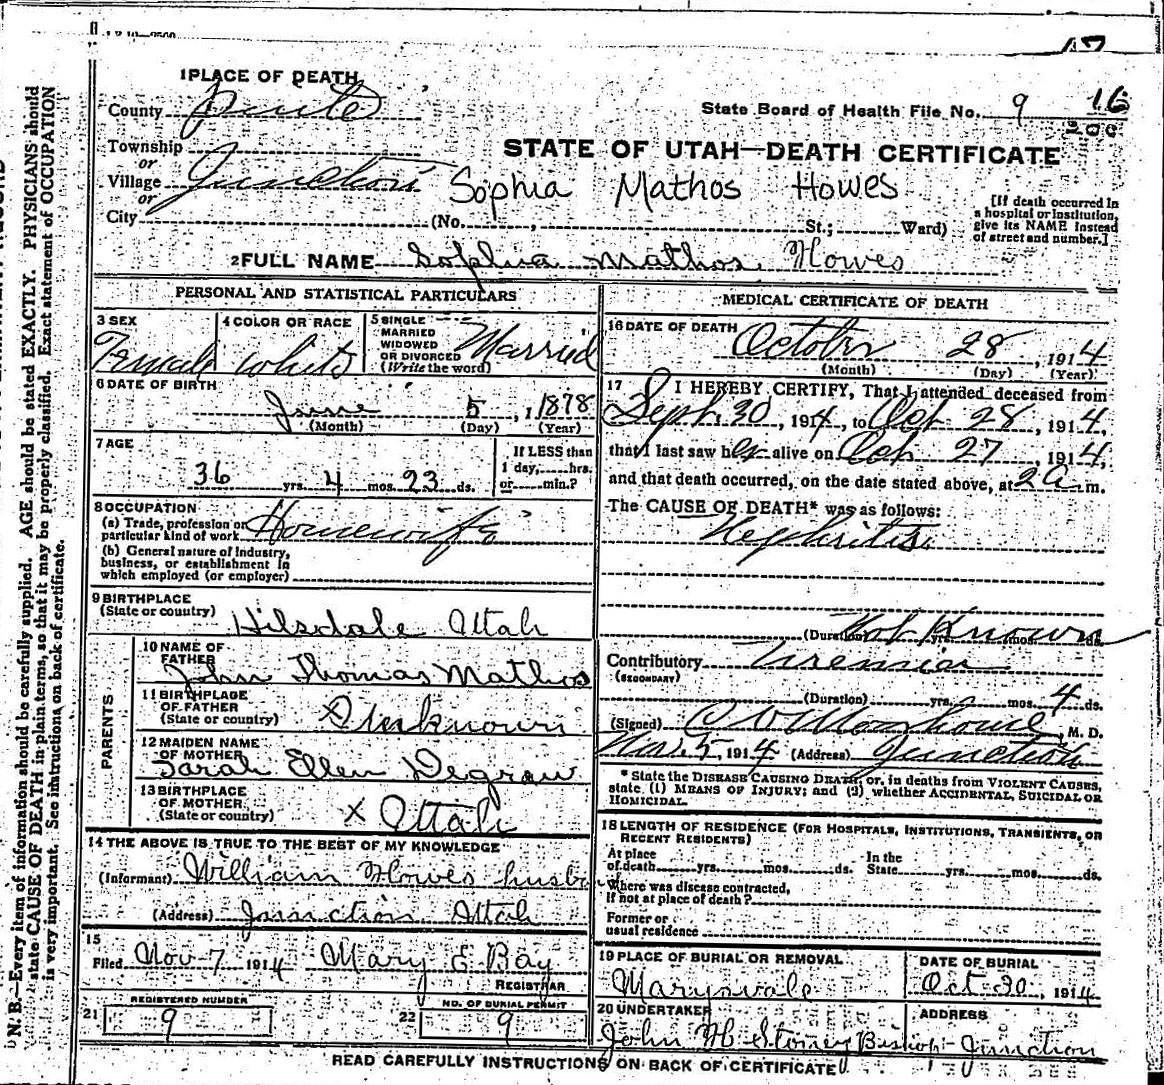 1 PLACE OF DEATH
County Piute
State Board of Health File No. 9 16
Township
or
STATE OF UTAH—DEATH CERTIFICATE
Village Junction
Sophia Mathos Howes
or
City (No. , St.; Ward)
[If death occurred in
a hospital or institution,
give its NAME instead
of street and number.]
2 FULL NAME Sophia Mathos Howes
PERSONAL AND STATISTICAL PARTICULARS
3 SEX
Female
4 COLOR OR RACE
White
5 SINGLE
MARRIED
WIDOWED
OR DIVORCED
(Write the word)
Married
6 DATE OF BIRTH
June 5, 1 1878
(Month) (Day) (Year)
7 AGE
36 yrs. 4 mos. 23 ds.
If LESS than
1 day, hrs.
or min.?
8 OCCUPATION
(a) Trade, profession or
particular kind of work Housewife
(b) General nature of Industry,
business, or establishment in
which employed (or employer)
9 BIRTHPLACE
(State or country) Hilsdale Utah
PARENTS
10 NAME OF
FATHER John Thomas Mathos
11 BIRTHPLACE
OF FATHER
(State or country) X Unknown
12 MAIDEN NAME
OF MOTHER
Sarah Ellen Degraw
13 BIRTHPLACE
OF MOTHER
(State or country) X Utah
14 THE ABOVE IS TRUE TO THE BEST OF MY KNOWLEDGE
(Informant) William Howes husb
(Address) Junction Utah
15
Filed Nov 7 1914 Mary E Bay
REGISTRAR
REGISTERED NUMBER
21 9
NO. OF BURIAL PERMIT
22 9
MEDICAL CERTIFICATE OF DEATH
16 DATE OF DEATH
October 28, 1914
(Month) (Day) (Year)
17 I HEREBY CERTIFY, That I attended deceased from
Sept 30, 1914, to Oct 28, 1914,
that I last saw her alive on Oct 27, 1914,
and that death occurred, on the date stated above, at 2 A m.
The CAUSE OF DEATH* was as follows:
Nephritis
(Duration) Not Known yrs. mos. ds.
Contributory Uremia
(SECONDARY)
(Duration) yrs. mos. 4 ds.
(Signed) M. D.
Nov. 5, 1914 (Address) Junction
* State the DISEASE CAUSING DEATH, or, in deaths from VIOLENT CAUSES,
state (1) MEANS OF INJURY; and (2) whether ACCIDENTAL, SUICIDAL OR
HOMICIDAL.
18 LENGTH OF RESIDENCE (FOR HOSPITALS, INSTITUTIONS, TRANSIENTS, OR
RECENT RESIDENTS)
At place
of death yrs. mos. ds.
In the
State yrs. mos. ds.
Where was disease contracted,
If not at place of death?
Former or
usual residence
19 PLACE OF BURIAL OR REMOVAL
Marysvale
DATE OF BURIAL
Oct 30, 1914
20 UNDERTAKER
John H Stoney Bishop
ADDRESS
Junction
READ CAREFULLY INSTRUCTIONS ON BACK OF CERTIFICATE
N. B.—Every item of information should be carefully supplied. AGE should be stated EXACTLY. PHYSICIANS should
state CAUSE OF DEATH in plain terms, so that it may be properly classified. Exact statement of OCCUPATION
is very important. See instructions on back of certificate.